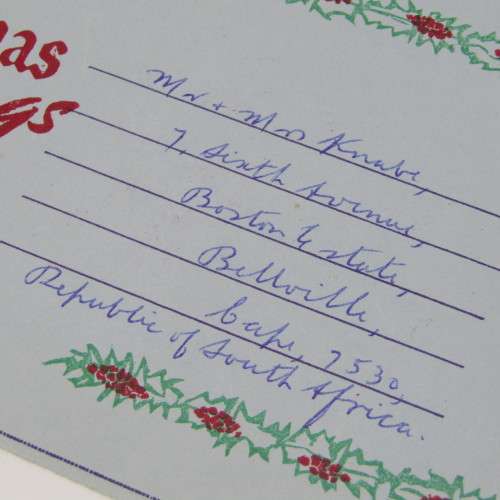 as
gs
Mr + Mrs Knabe,
7, Sixth Avenue,
Boston Estate,
Bellville,
Cape, 7530,
Republic of South Africa.